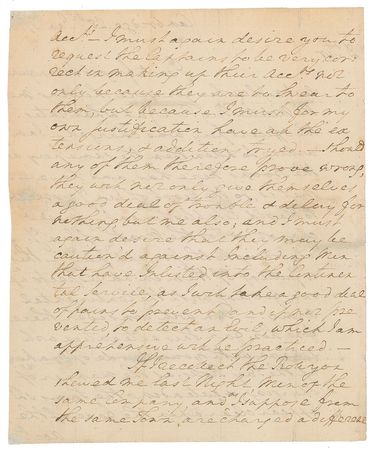 Accts — I must again desire you to
request the Captains to be very cor
rect in making up their Accts not
only because they are to Swear to
them, but because I must for my
own justification have all the ex
tensions, & additions tryed. — Should
any of them therefore prove wrong,
they will not only give themselves
a good deal of trouble & delay for
nothing but me also; and I must
again desire that they may be
caution'd against including Men
that have Inlisted into the Continen
tal Service, as I will take a good deal
of pains to prevent, and if not pre
vented, to detect an evil, which I am
apprehensive will be practiced —
If I recollect the Roll you
shewed me last Night Men of the
same Company, and I suppose from
the same Town, are charged a difference